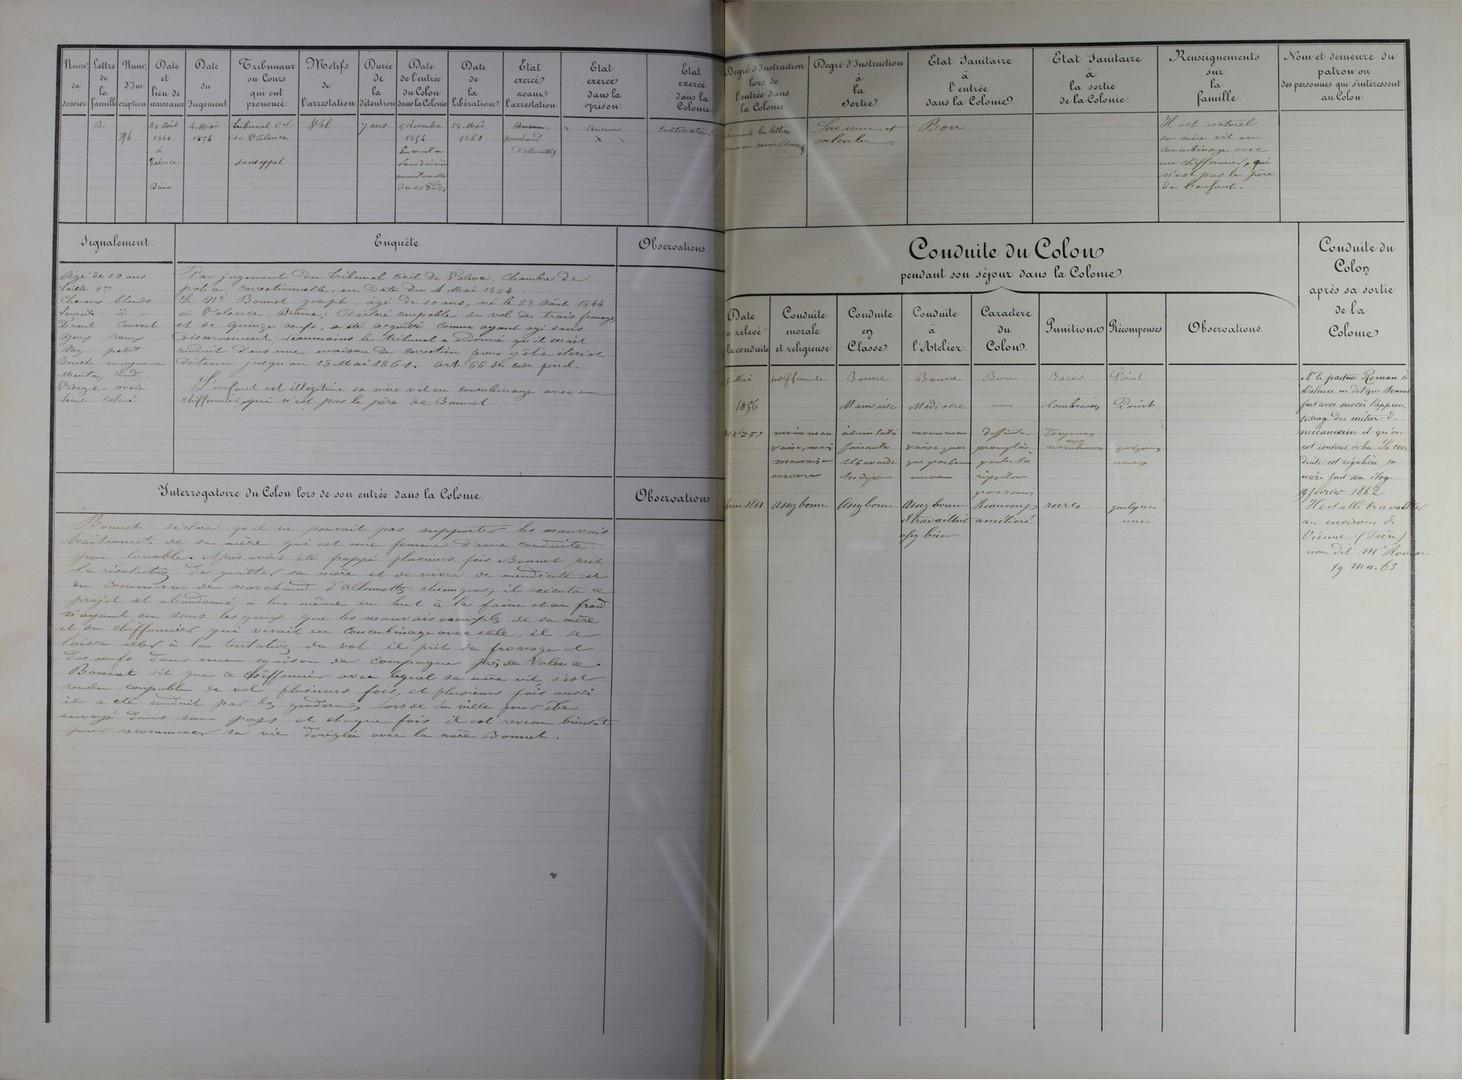 Num.o du dossier
Lettre de la famille
B.
Num.o d'Inscription
Date et lieu de naissance
28 Août
1844
à
Valence
Drôme
Date du Jugement
4 Mai
1854
Tribunaux ou Cours qui ont prononcé
Tribunal
de Valence
sans appel
Motifs de l'arrestation
Vol
Durée de la détention
7 ans
Date de l'entrée du Colon dans la Colonie
9 Novembre
1854
Date de la Libération
18 Mai
1861
Etat exercé avant l'arrestation
Aucun
marchand
d'allumettes
Etat exercé dans la prison
Aucun
Etat exercé dans la Colonie
cultivateur
Degré d'Instruction lors de l'entrée dans la Colonie
Degré d'Instruction à la Sortie
Lire écrire et
calculer
Etat Sanitaire à l'entrée dans la Colonie
Bon
Etat Sanitaire à la sortie de la Colonie
Renseignements sur la famille
Il est naturel
sa mère vit en
concubinage avec
un chiffonnier, qui
n'est pas le père
de l'enfant.
Nom et demeure du patron ou des personnes qui s'intéressent au Colon
Signalement.
Agé de 10 ans
Taille 1m
Cheveux blonds
Sourcils id
Front couvert
Yeux roux
Nez petit
Bouche moyenne
Menton rond
Visage ovale
Teint coloré
Enquête
Par jugement du tribunal civil de Valence, Chambre de
police correctionnelle, en date du 4 Mai 1854
Le Né Bonnet Joseph âgé de 10 ans, né le 28 Août 1844
à Valence, Drôme; Déclaré coupable du vol de trois fromages
et de quinze œufs, a été acquitté comme ayant agi sans
discernement; néanmoins le tribunal a ordonné qu'il serait
conduit dans une maison de correction pour y être élevé et
détenu jusqu'au 18 Mai 1861. art. 66 du code pénal.
L'enfant est illégitime sa mère vit en concubinage avec un
chiffonnier qui n'est pas le père de Bonnet.
Observations
Interrogatoire du Colon lors de son entrée dans la Colonie.
Bonnet déclare qu'il ne pouvait pas supporter les mauvais
traitements de sa mère qui est une femme d'une conduite
peu louable. Après avoir été frappé plusieurs fois Bonnet prit
la résolution de quitter sa mère et de vivre de mendicité et
du commerce de marchand d'allumettes chimiques; il exécuta ce
projet et abandonné à lui même en but à la faim et au froid
n'ayant eu sous les yeux que les mauvais exemples de sa mère
et du chiffonnier qui vivait en concubinage avec elle, il se
laissa aller à la tentation du vol: il prit du fromage et
des œufs dans une maison de campagne près de Valence.
Bonnet dit que ce chiffonnier avec lequel sa mère vit, s'est
rendu coupable de vol plusieurs fois, et plusieurs fois aussi
il a été conduit par les gendarmes hors de la ville pour être
envoyé dans son pays et chaque fois il est revenu bientôt
pour recommencer sa vie déréglée avec la mère Bonnet.
Observations
Conduite du Colon
pendant son séjour dans la Colonie
Date du relevé de la conduite
Conduite morale et religieuse
Conduite en Classe
Conduite à l'Atelier
Caractère du Colon
Punitions
Récompenses
Observations.
Mai indifférente Bonne Bonne Bon Rares Point
1856 Mauvaise Médiocre — nombreuses Point
1861 assez bonne Assez bonne Assez bonne Beaucoup rares quelques
et travaillait amélioré unes
assez bien
Conduite du Colon après sa sortie de la Colonie
Mr le pasteur Roman à
Valence me dit que Bonnet
fait avec succès l'appren-
tissage du métier de
mécanicien et qu'on
est content de lui. Sa con-
duite est régulière sa
mère fait son éloge
19 février 1862
Il est allé travailler
aux environs de
Vienne (Isère)
nous dit Mr Roman
19 mai 63